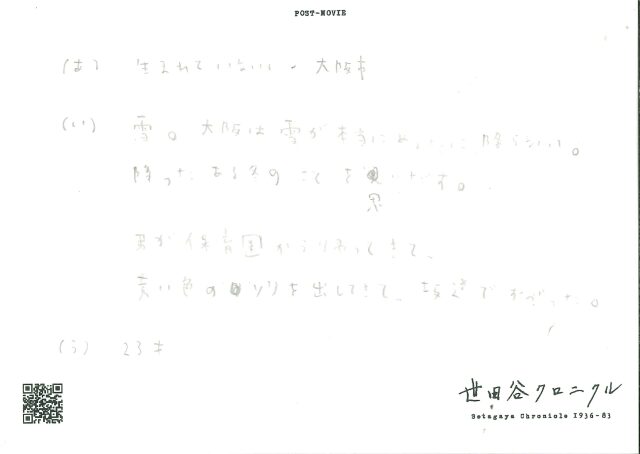 POST-MOVIE
(あ) 生まれていない・大阪市
(い) 雪。大阪は雪が本当にめったに降らない。
降ったある冬のことを思いだす。
兄が保育園からうちへ帰ってきて、
黄い色のソリを出してきて、坂道ですべった。
(う) 23才
世田谷クロニクル
Setagaya Chronicle 1936-83